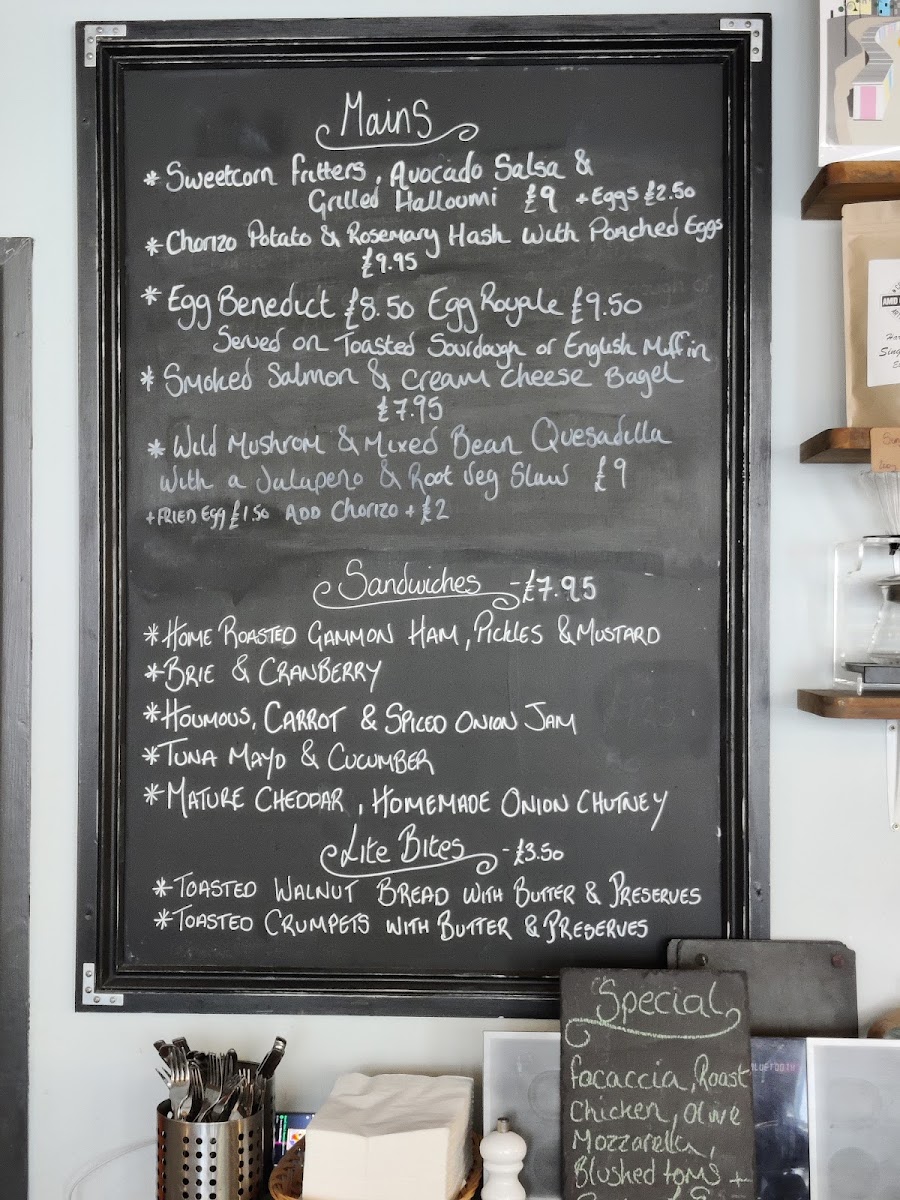 Mains
* Sweetcorn Fritters, Avocado Salsa &
Grilled Halloumi £9 + Eggs £2.50
* Chorizo Potato & Rosemary Hash with Poached Eggs
£9.95
* Egg Benedict £8.50 Egg Royale £9.50
Served on Toasted Sourdough or English Muffin
* Smoked Salmon & Cream Cheese Bagel
£7.95
* Wild Mushrom & Mixed Bean Quesadilla
with a Jalapeno & Root Veg Slaw £9
+ FRIED Egg £1.50 ADD Chorizo + £2
Sandwiches - £7.95
* HOME ROASTED GAMMON HAM, PICKLES & MUSTARD
* BRIE & CRANBERRY
* HOUMOUS, CARROT & SPICED ONION JAM
* TUNA MAYO & CUCUMBER
* MATURE CHEDDAR, HOMEMADE ONION CHUTNEY
Lite Bites - £3.50
* TOASTED WALNUT BREAD WITH BUTTER & PRESERVES
* TOASTED CRUMPETS WITH BUTTER & PRESERVES
Special
Focaccia, Roast
Chicken, Olive
Mozzarella,
Blushed toms +